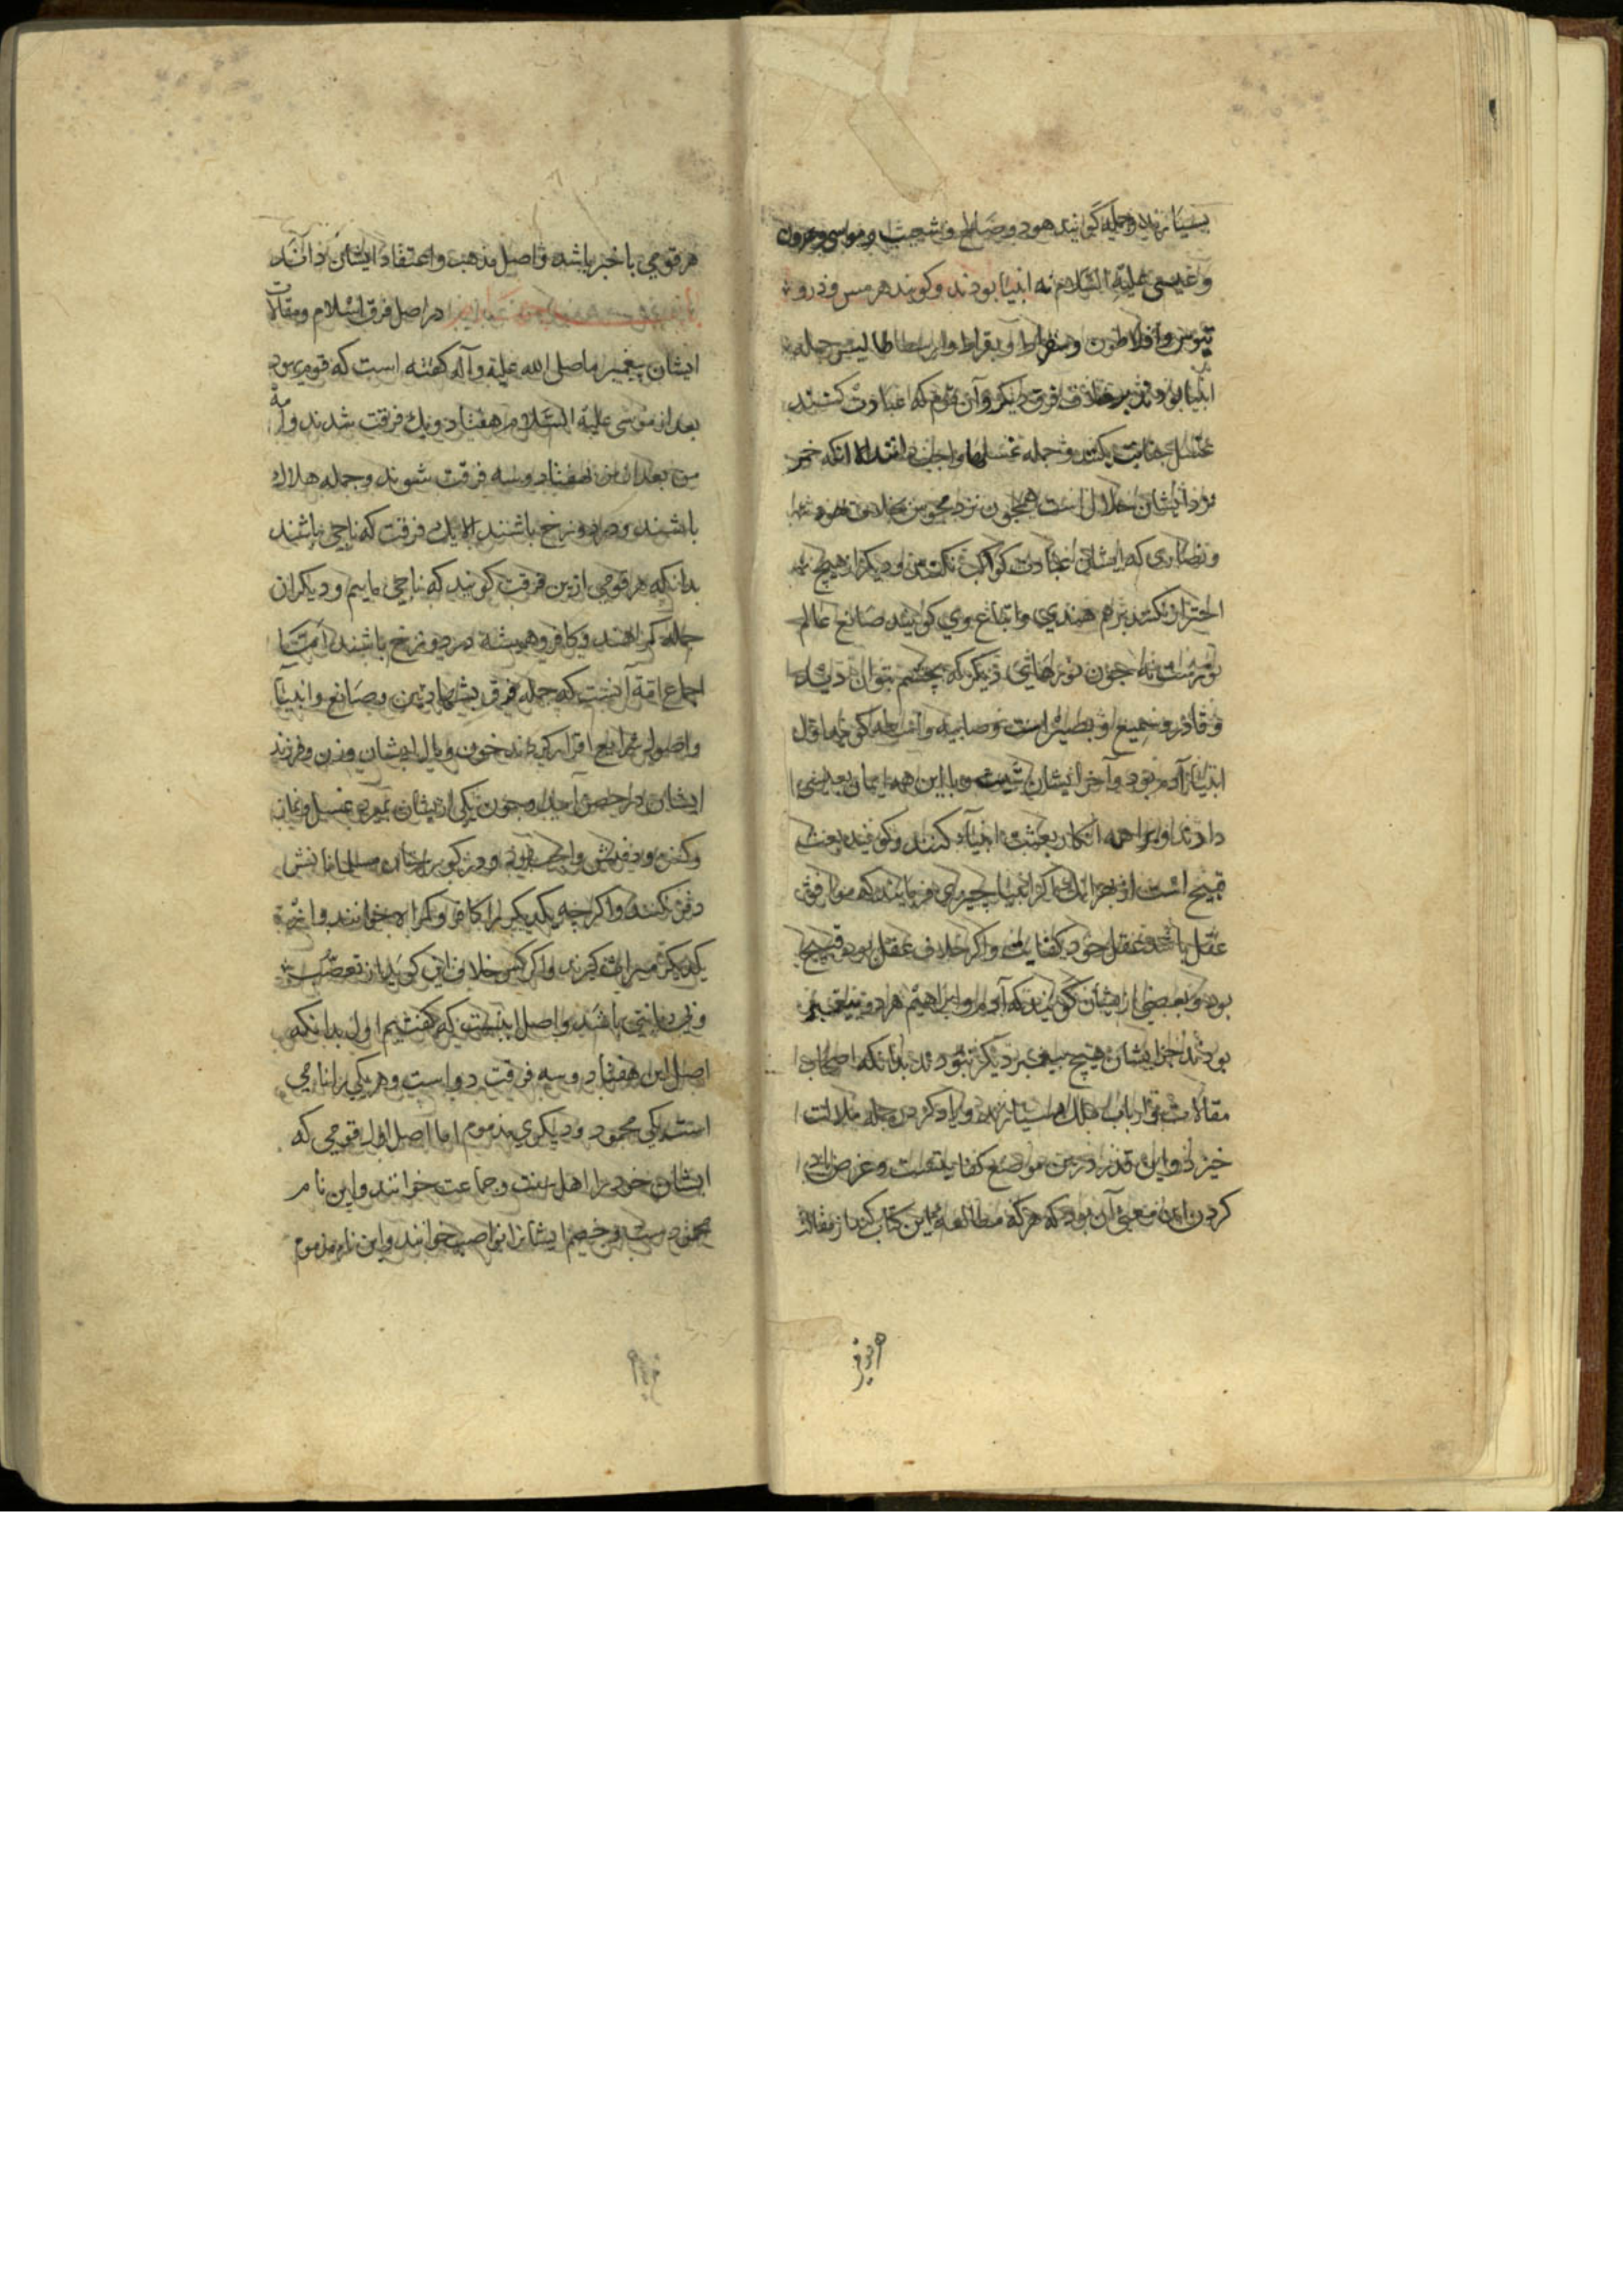 بسیارند و جمله گویند هود و صالح و شعیب و موسی و هرون
و عیسی علیه السلام نه انبیا بودند و کویند هرمس و ذروـ
تیوس و افلاطون و سقراط و بقراط و ارسطاطالیس جمله
انبیا بودند بر خلاف فرق دیکر و آن قوم که عبادت کنند
غسل جنابت نکنند و جمله غسلها واجب دانند الا انکه خمر
نزد ایشان حلال است همچون نزد مجوس بخلاف
و نصاری که ایشان عبادت کواکب نکنند و دیکر از هیچ
احتراز نکنند براهم هندی و اتباع وی کویند صانع عالم
نوریست نه جون نورهای دیکر که بچشم بتوان دید
و قادر و سمیع و بصیر است و صابیه
انبیا آدم بود و آخر ایشان شیث و با این همه ایمان به
دارند و براهمه انکار بعثت انبیا کنند و کویند بعثت
قبیح است از بهر انک اکر انبیا چیزی فرمایند که موافق
عقل باشد عقل خود کفایت و اکر خلاف عقل بود قبیح
بود و بعضی از ایشان کویند که آدم و ابراهیم هر دو پیغمبر
بودند جز ایشان هیچ پیغمبر دیکر نبودند بدانکه اصحاب
مقالات و ارباب ملل بسیارند و یاد کردن جمله ملالت
خیزد و این قدر درین موضع کفایتست و غرض یاد
کردن این معنی آن بود که هر که مطالعه این کتاب کند از مقالات
هر قومی با خبر باشد و اصل مذهب و اعتقاد ایشان داند
در اصل فرق اسلام و مقالات
ایشان پیغمبر ما صلی الله علیه و آله کفته است که قوم
بعد از موسی علیه السلام هفتاد و یک فرقت شدند و امة
من بعد از من هفتاد و سه فرقت شوند و جمله هلاک
باشند و در دوزخ باشند الا یک فرقت که ناجی باشند
بدانکه هر قومی ازین فرقت کویند که ناجی ماییم و دیکران
جمله کمراهند و کافر و همیشه در دوزخ باشند امّا
اجماع امة آنست که جمله فرق بشهادتین و صانع و انبیا
و اصول شرایع اقرار کردند خون و مال ایشان و زن و فرزند
ایشان در حصن آمد و چون یکی از ایشان بمیرد غسل و نماز
و کفن و دفنش واجب بود و در کورستان مسلمانانش
دفن کنند و اکرچه یکدیکر را کافر و کمراه خوانند و از
یکدیکر میراث کیرند و اکر کسی خلاف این کوید از تعصب
و بی دیانتی باشد و اصل اینست که کفتیم اول بدانکه
اصل این هفتاد و سه فرقت دو است و هر یکی را نامی
است یکی محمود و دیکری مذموم اما اصل اول قومی که
ایشان خود را اهل سنت و جماعت خوانند و این نام
محمودست و خصم ایشانرا نواصب خوانند و این نام مذموم